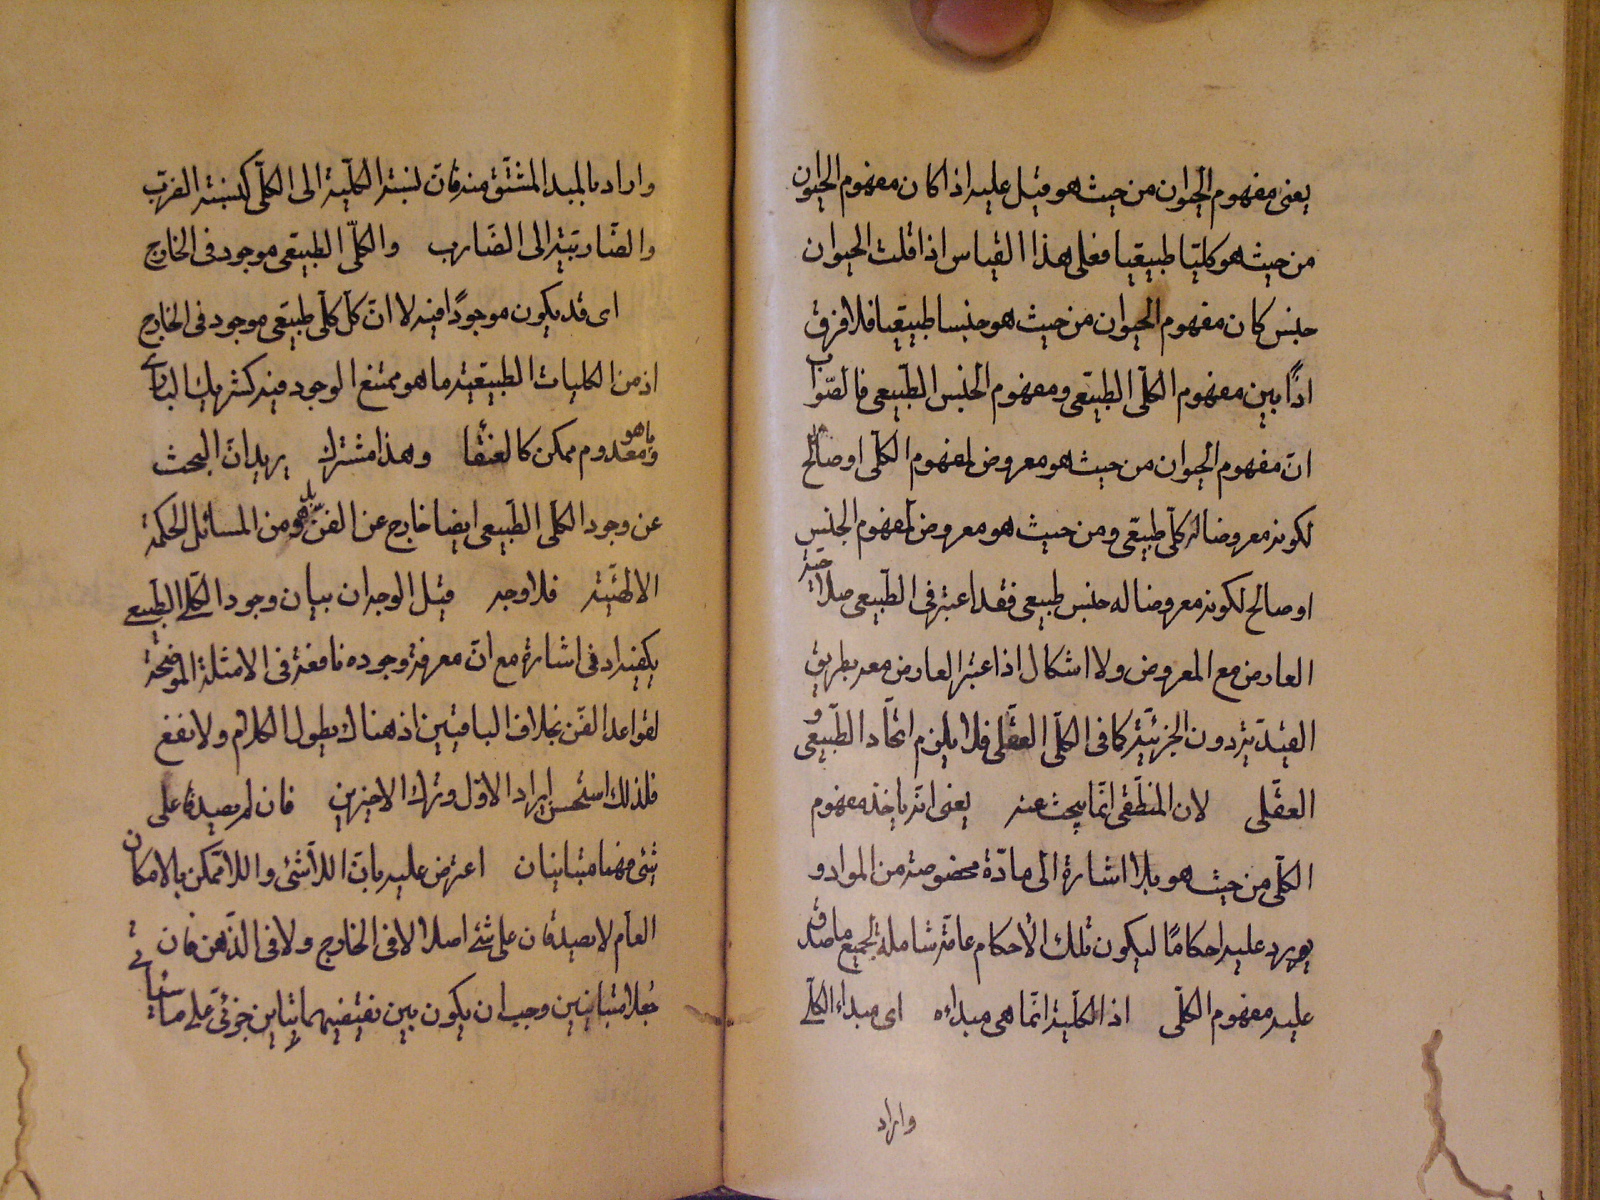 يعنى مفهوم الحيوان من حيث هو قيل عليه اذا كان مفهوم الحيوان
من حيث هو كليّا طبيعيا فعلى هذا القياس اذا قلت الحيوان
جنس كان مفهوم الحيوان من حيث هو جنسا طبيعيا فلا فرق
اذًا بين مفهوم الكلّى الطبيّعى ومفهوم الجنس الطّبيعى فالصّواب
انّ مفهوم الحيوان من حيث هو معروض لمفهوم الكلّى او صالح
لكونه معروضا له كلّى طبيعّى ومن حيث هو معروض لمفهوم الجنس
او صالح لكونه معروضا له جنس طبيعى فقد اعتبر فى الطّبيعى صلاحيّة
العارض مع المعروض ولا اشكال اذا اعتبر العارض معه بطريق
القيديّة دون الجزئيّة كما فى الكلّى العقلى فلا يلزم اتحاد الطّبيعى و
العقلى لان المنطقى انّما يبحث عنه يعنى انّه ياخذ مفهوم
الكلّى من حيث هو بلا اشارة الى مادّة مخصوصة من المواد و
يورد عليه احكامًا ليكون تلك الاحكام عامّة شاملة لجميع ما صدق
عليه مفهوم الكلّى اذ الكلّية انّما هى مبداءه اى مبداء الكلّى
واراد
واراد بالمبدا المشتق منه فانّ نسبة الكلّية الى الكلّى كنسبة الضرب
والضّاربيّة الى الضّارب والكلّى الطبيّعى موجود فى الخارج
اى قد يكون موجودًا فيه لا انّ كلّ كلّى طبيعّى موجود فى الخارج
اذ من الكليات الطبيعيّة ما هو ممتنع الوجود فيه كشريك البارى
وما هو معدوم ممكن كالعنقا وهذا مشترك يريد انّ البحث
عن وجود الكلّى الطّبيعى ايضا خارج عن الفنّ بل هو من المسائل الحكمة
الالهيّة فلا وجه قيل الوجه ان بيان وجود الكلّى الطّبيعى
يكفيه ادنى اشارة مع انّ معرفة وجوده نافعة فى الامثلة الموضحة
لقواعد الفنّ بخلاف الباقيين اذ هناك يطول الكلام ولا نفع
فلذلك استحسن ايراد الاوّل وترك الاخيرين فان لم يصدقا على
شئ فهما متباينان اعترض عليه بانّ اللاشئ واللاممكن بالامكان
العام لا يصدقان على شئ اصلا لا فى الخارج ولا فى الذّهن فان
جعلا متباينين وجب ان يكون بين نقيضيهما تباين جزئىّ على ما سياتى